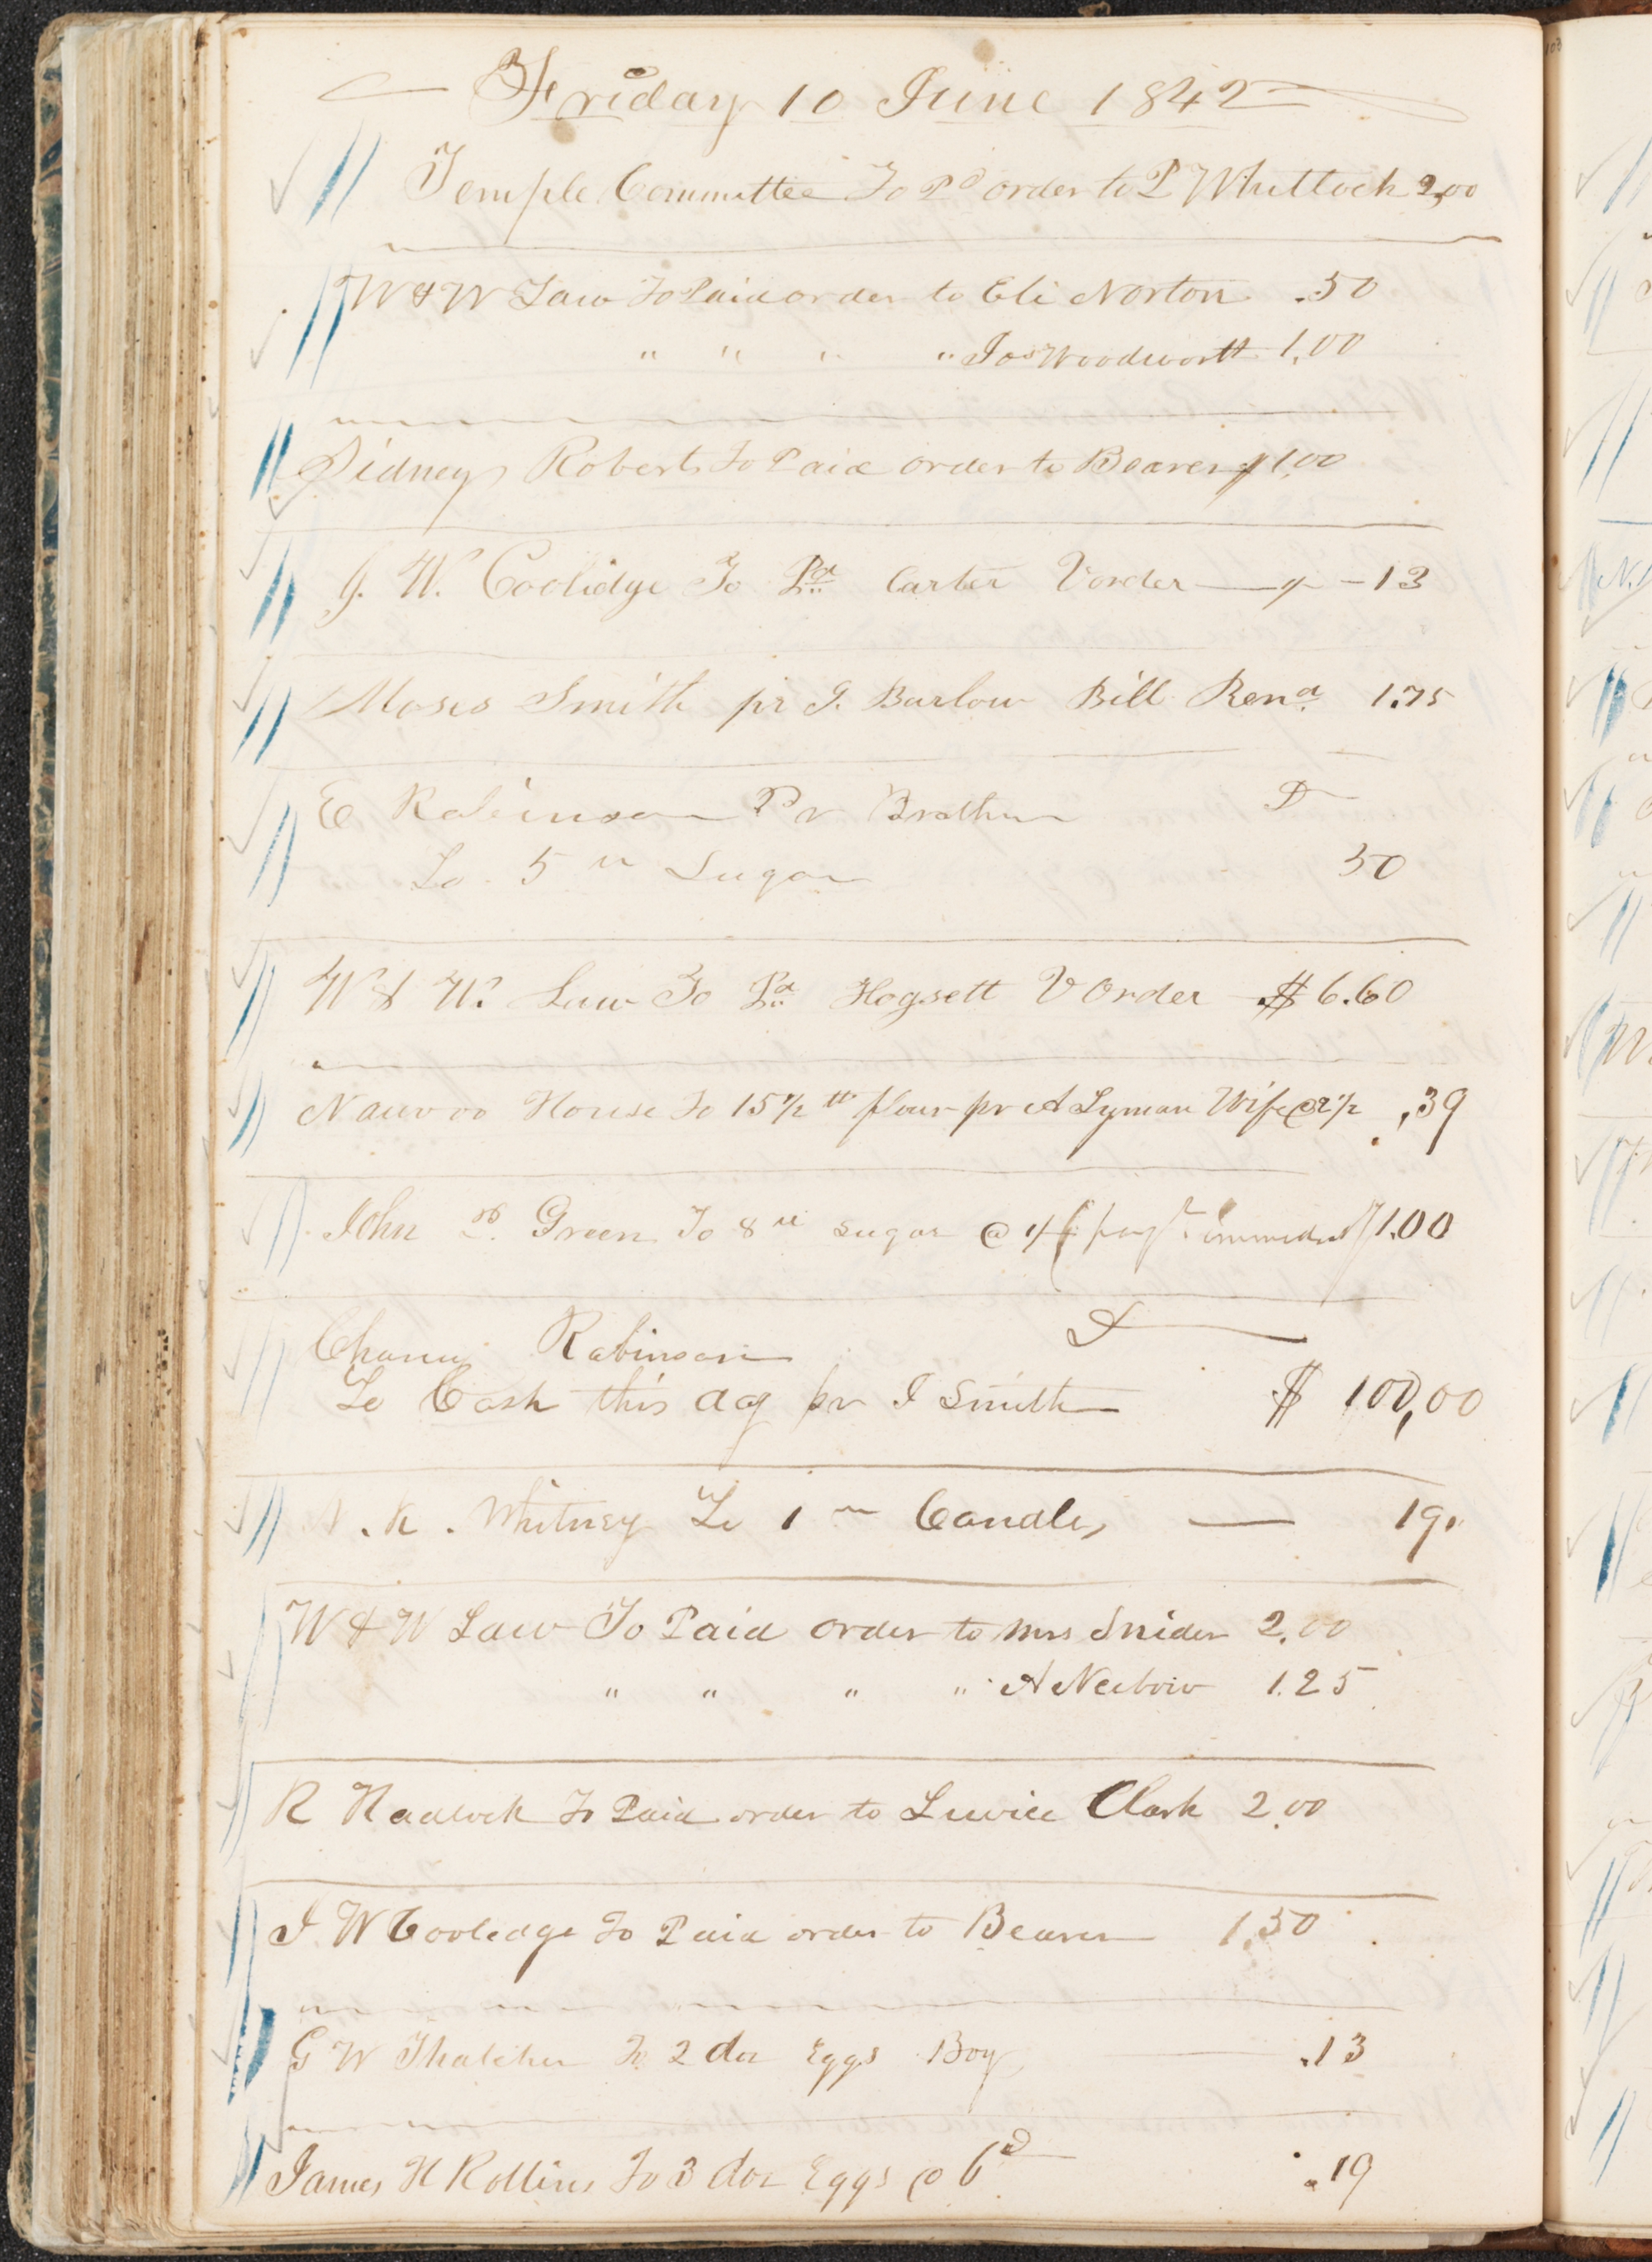 Friday 10 June 1842
Temple Committee To Pd order to P Whitlock 2,00
W & W Law To Paid order to Eli Norton .50
" " " " Jos Woodworth 1.00
Sidney Roberts To Paid order to Bearer 1.00
J. W. Coolidge To Pd Carter order — 13
Moses Smith pr J. Barlow Bill Rend 1.75
E Robinson Pr Brother D
To 5 lb Sugar 50
W & W. Law To Pd Hogsett order $6.60
Nauvoo House To 15 1/2 lb flour pr A Lyman Wife @ 2 1/2 .39
John P. Green To 8 lb sugar @ 1.00
Robinson D
To Cash this day pr J Smith $ 100,00
N. K. Whitney To 1 lb Candles — 19.
W & W Law To Paid order to Mrs Snider 2.00
" " " " A 1.25
R Hadlock To Paid order to Clark 2.00
J W Cooledge To Paid order to Bearer 1.50
G W Thatcher To 2 doz Eggs Boy .13
James H Rollins To 3 doz Eggs @ 6d .19